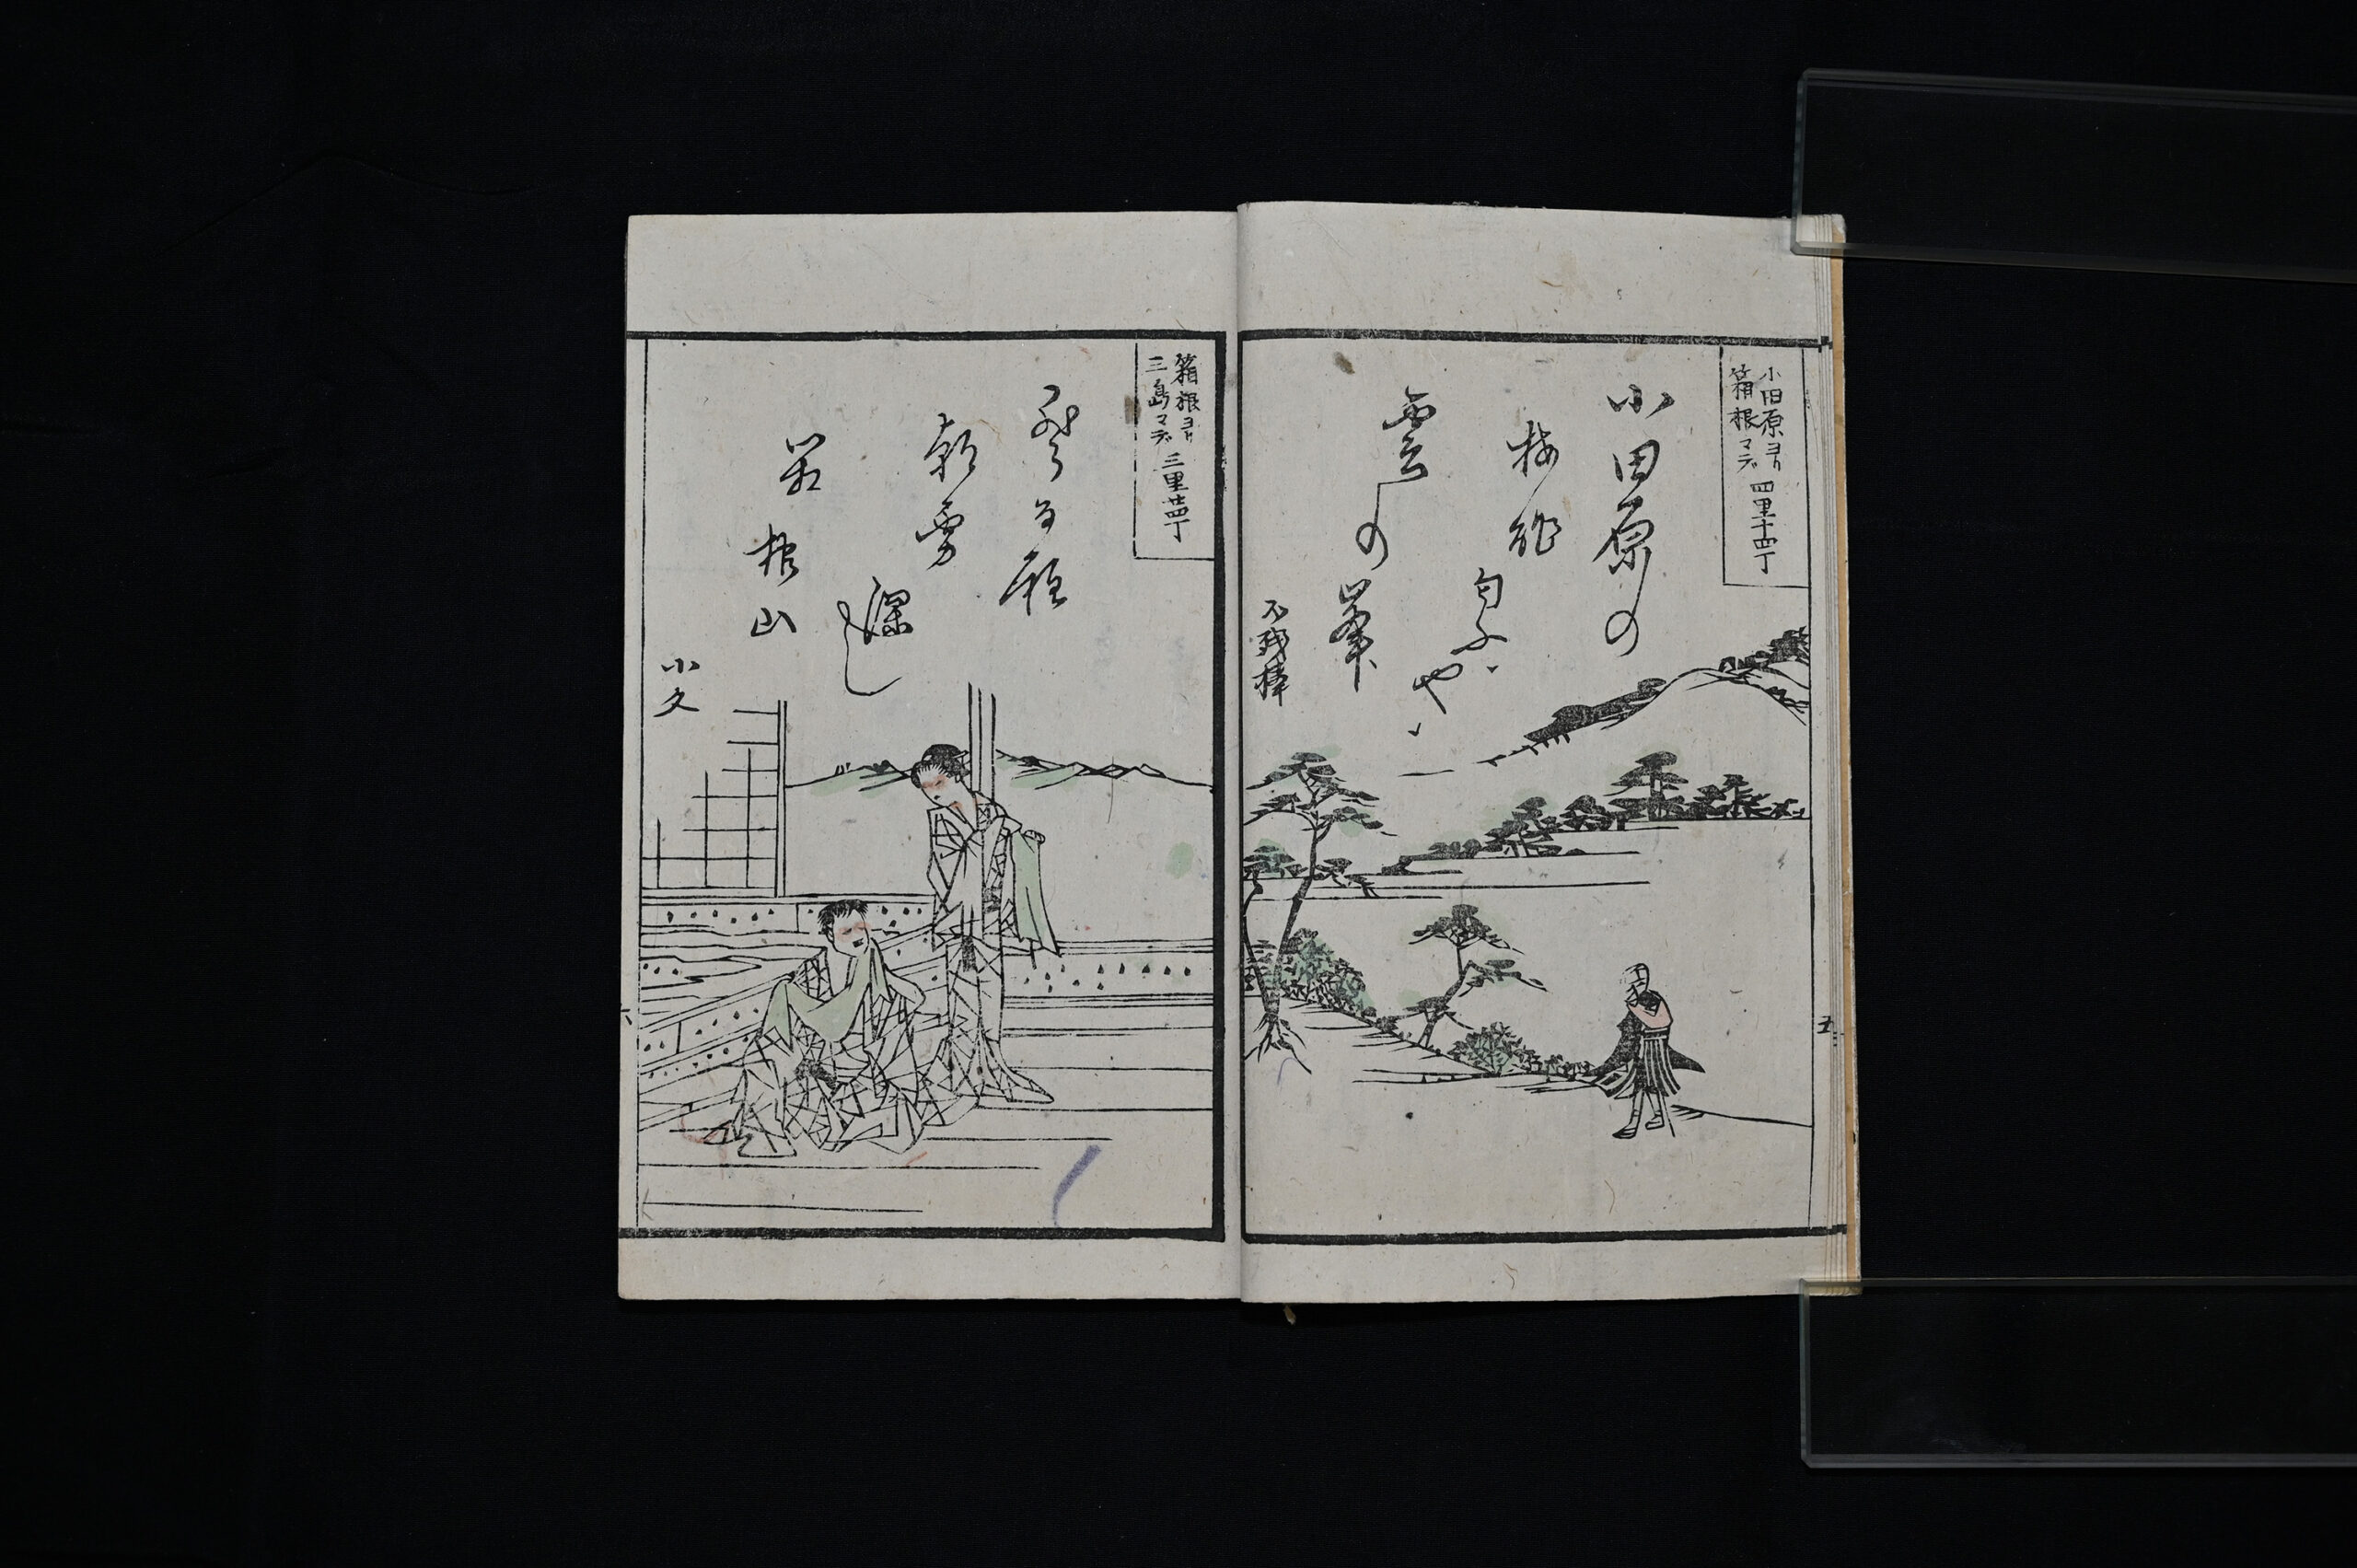 小田原ヨリ
箱根マデ
四里十四丁
小田原の
梅能
匂ふや
雲の
峯
不残
箱根ヨリ
三島マデ
三里廿四丁
程
朝雰
深し
箱
根
山
小文
五